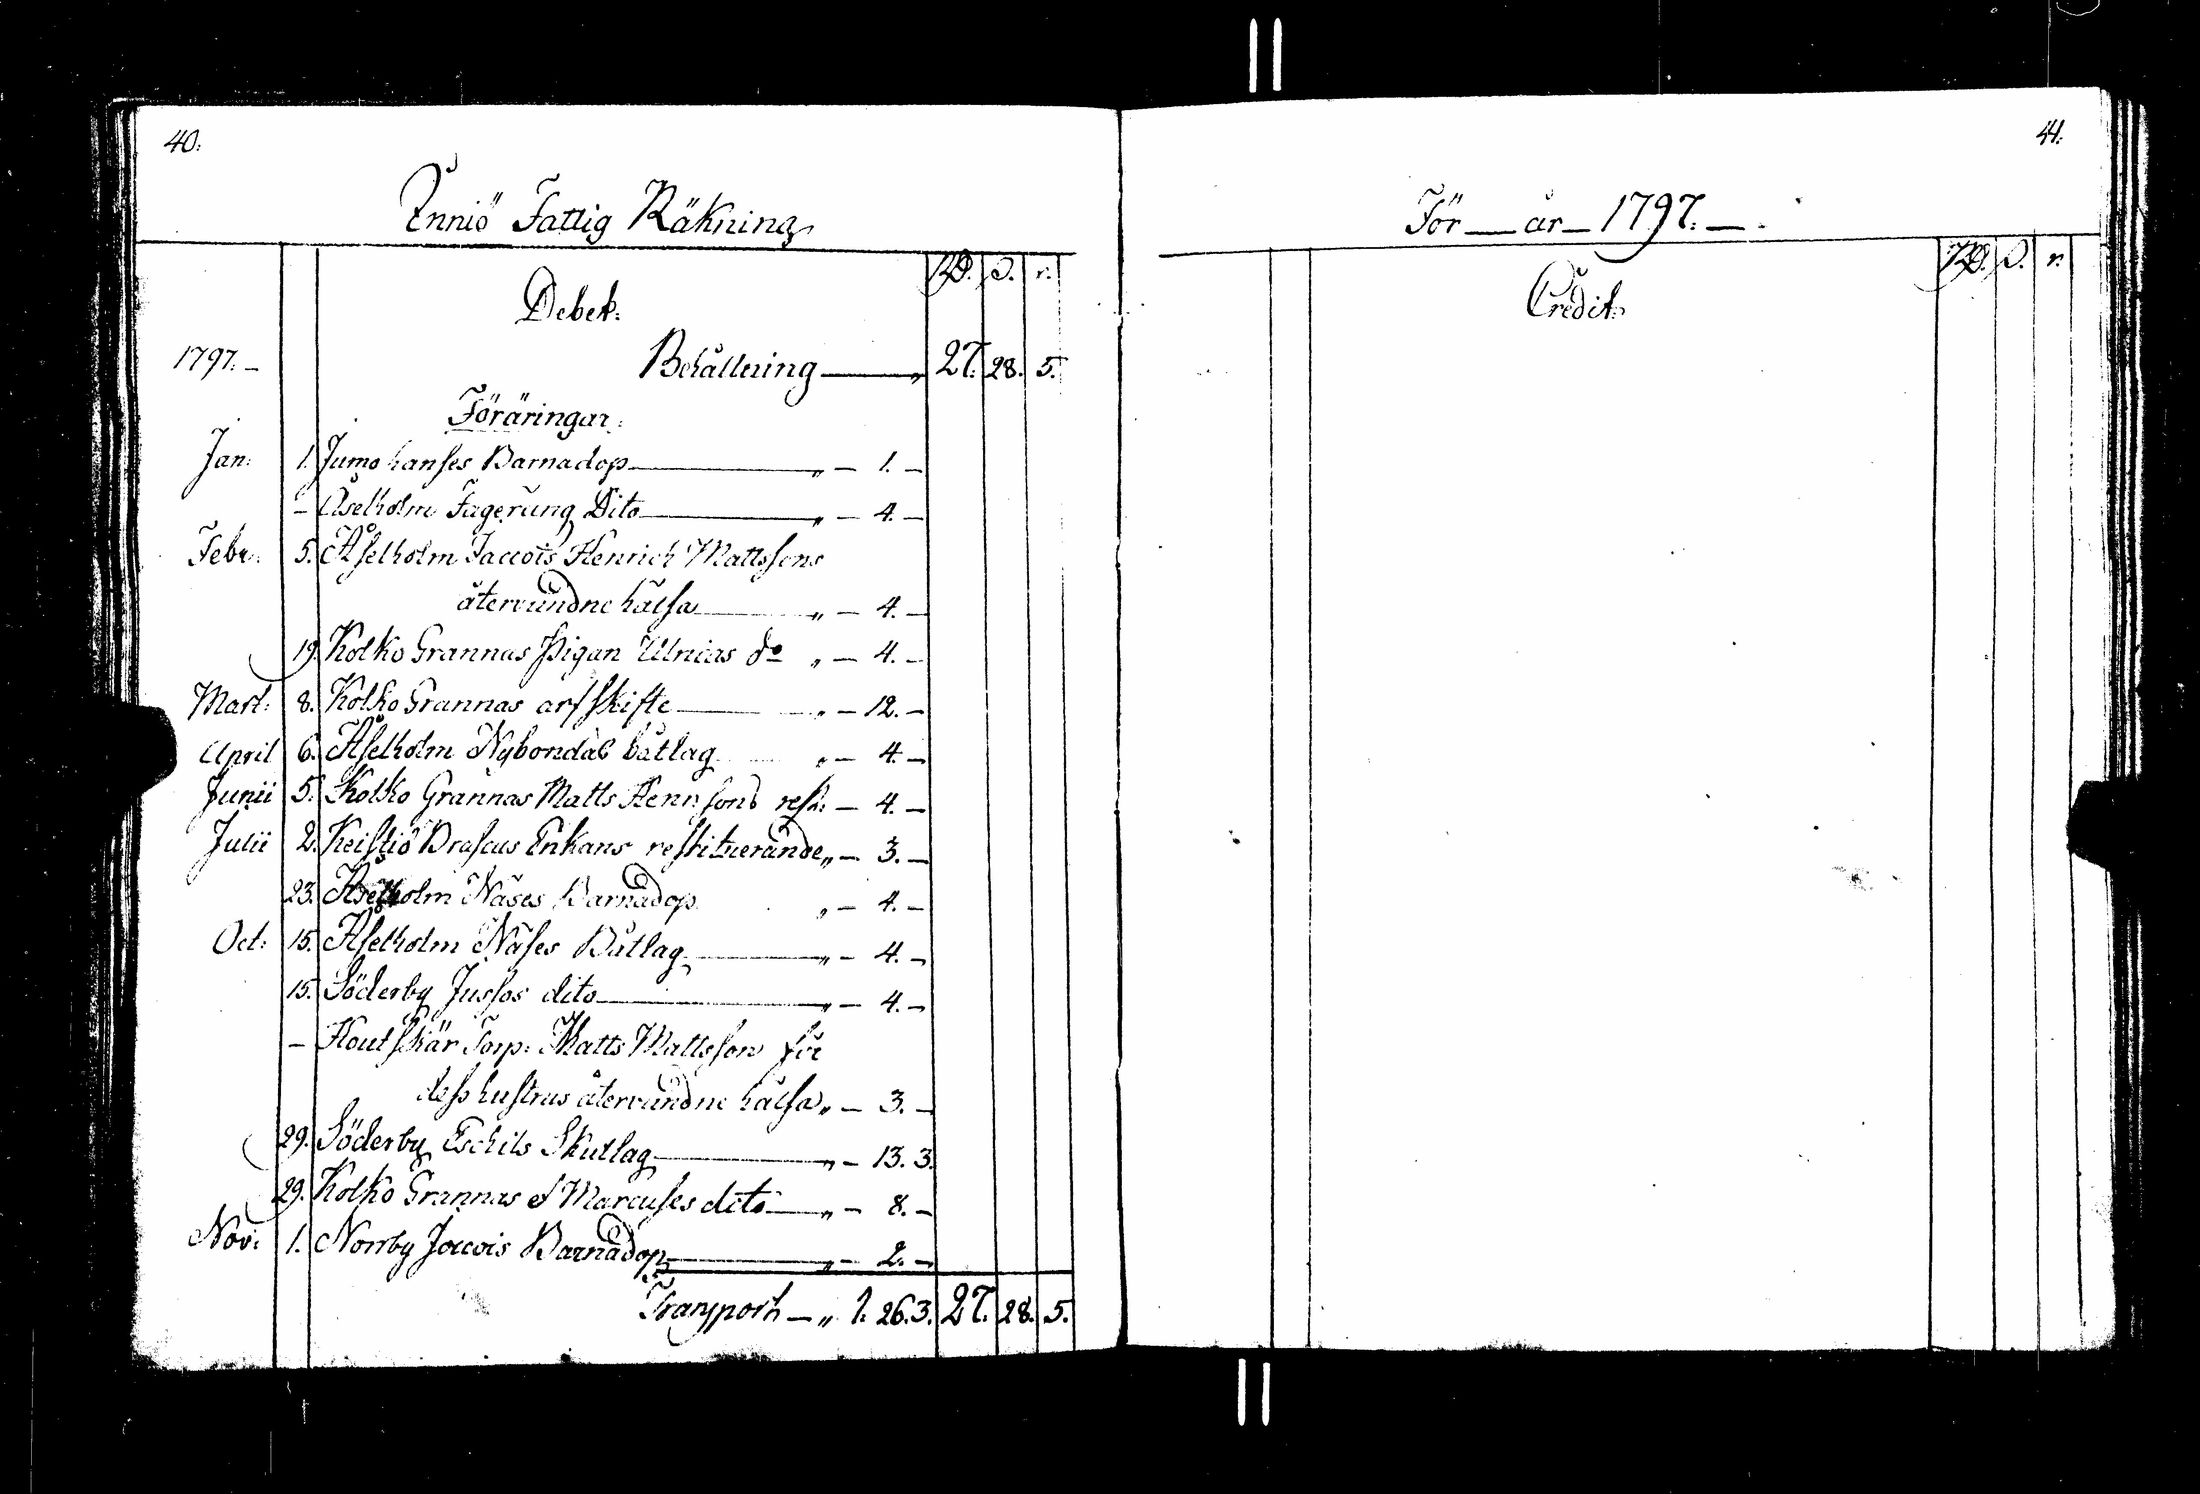 40.
Enniö Fattig Räkning
RD. S. r.
Debet.
1797. — Behållning — „ 27. 28. 5.
Föräringar.
Jan: 1. Jumo hanses Barnadop — „ — 1. —
— Åselholm Fagerüng Dito — „ — 4. —
Febr: 5. Åselholm Jaccois Henrich Mattssons
återvundne hälsa — „ — 4. —
19. Kolko Grannas Pigan Ulricas do „ — 4. —
Mart: 8. Kolko Grannas arfskifte — „ — 12. —
April 6. Åselholm Nybondas båtlag „ — 4. —
Junii 5. Kolko Grannas Matts Hennsons rest: — 4. —
Julii 2. Keistiö Brascus Enkans restituerande „ — 3. —
23. Åselholm Näses Barnadop „ — 4. —
Oct: 15. Åselholm Näses Båtlag — „ — 4. —
15. Söderby Jussos dito — „ — 4. —
— Houtskär Torp: Matts Mattsson för
dess hustrus återvundne hälsa „ — 3. —
29. Söderby Eschils Skutlag — „ — 13. 3.
29. Kolko Grannas et Marcuses dito — „ — 8. —
Nov: 1. Norrby Joccois Barnadop — „ — 2. —
Transport — „ 1. 26. 3. 27. 28. 5.
41.
För — år — 1797. —
RD. S. r.
Credit.